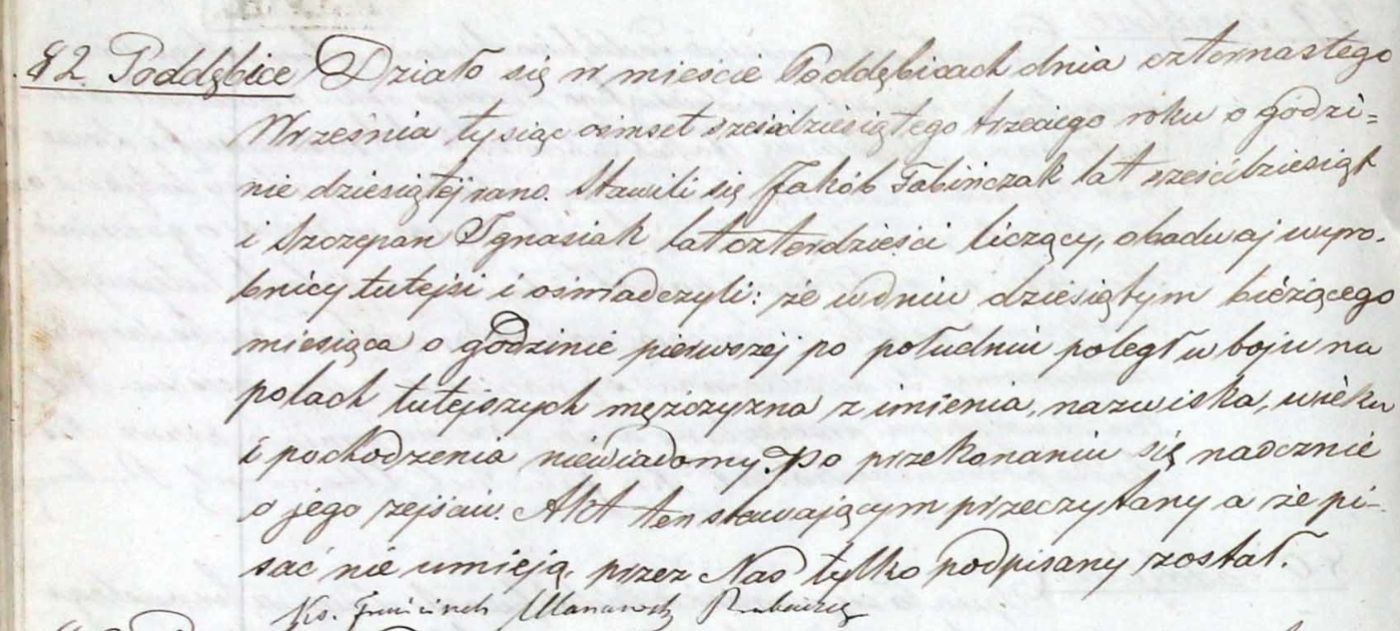 82. Poddębice Działo się w mieście Poddębicach dnia czternastego
Września tysiąc ośmset sześćdziesiątego trzeciego roku o godzi=
nie dziesiątej rano. Stawili się Jakób Fabińczak lat sześćdziesiąt
i Szczepan Ignasiak lat czterdzieści liczący, obadwaj wyro-
bnicy tutejsi i oświadczyli: że w dniu dziesiątym bieżącego
miesiąca o godzinie pierwszej po południu poległ w boju na
polach tutejszych mężczyzna z imienia, nazwiska, wieku
i pochodzenia niewiadomy. Po przekonaniu się naocznie
o jego zejściu. Akt ten stawającym przeczytany a że pi-
sać nie umieją, przez Nas tylko podpisany został.
Ks.